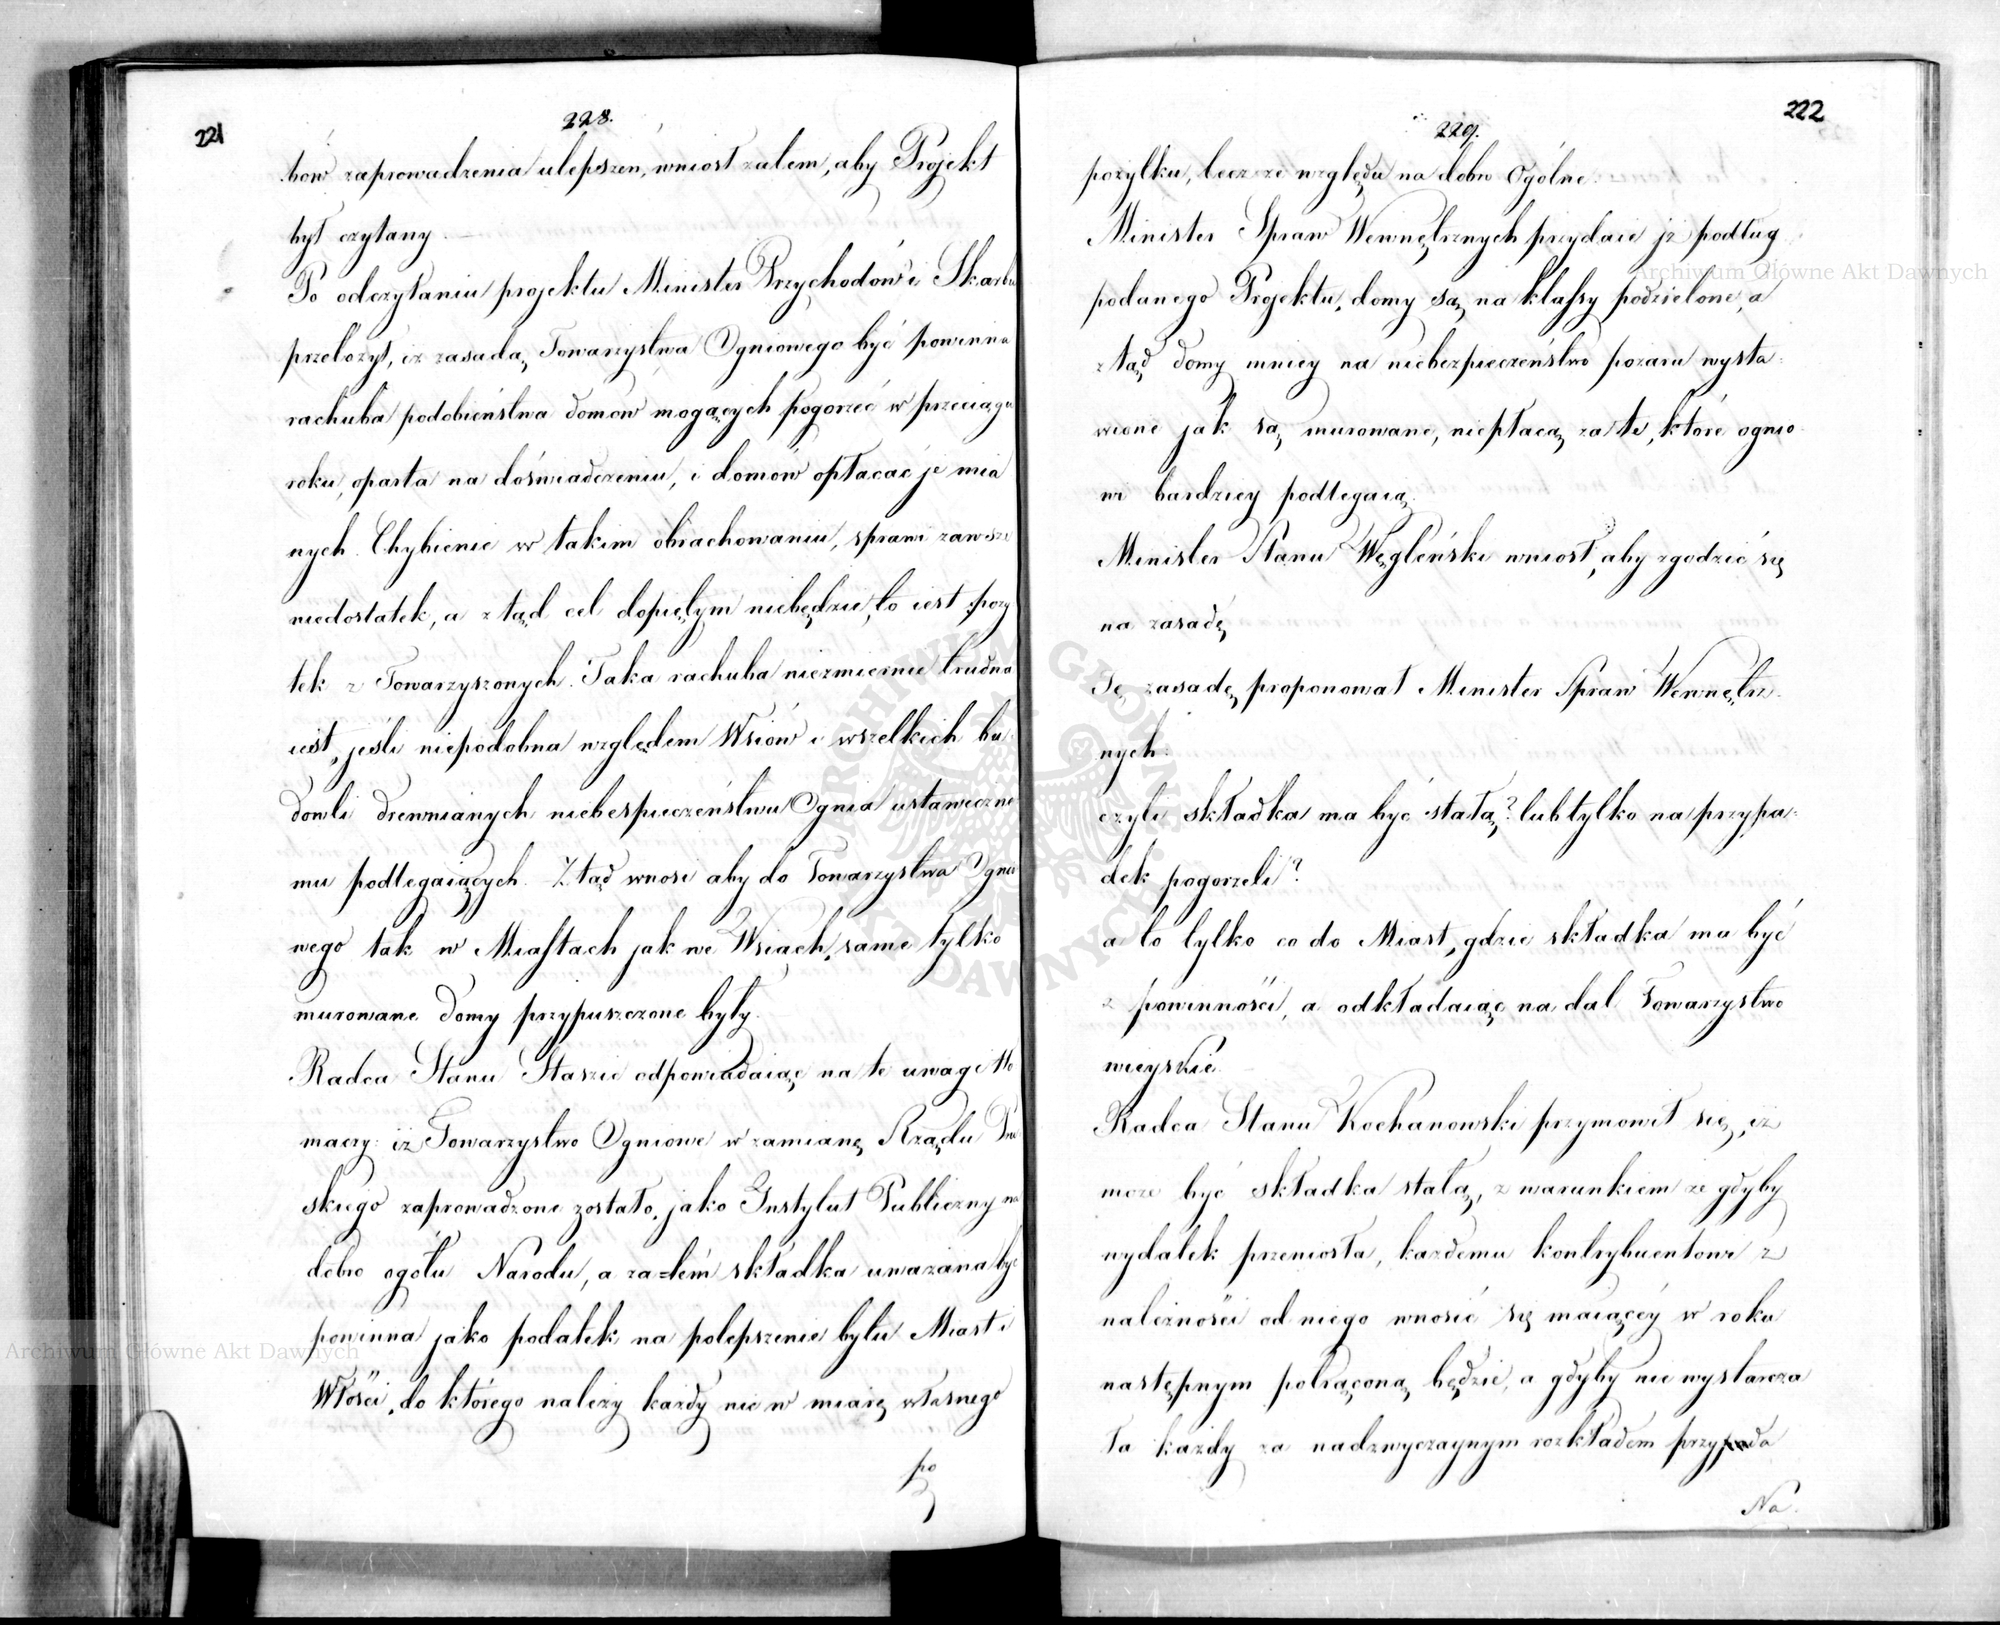 221
228.
bów zaprowadzenia ulepszeń, wniosł zatem, aby Projekt
był czytany.
Po odczytaniu projektu Minister Przychodów i Skarbu
przełożył, iż zasadą Towarzystwa Ogniowego być powinna
rachuba podobieństwa domów mogących pogorzeć w przeciągu
roku, oparta na doświadczeniu, i domów opłacać je mia
nych. Chybienie w takim obrachowaniu, sprawi zawsze
niedostatek, a ztąd cel dopiętym niebędzie, to iest pozy
tek z Towarzyszonych. Taka rachuba niezmiernie trudna
iest, jeśli niepodobna względem Wsiów i wszelkich bu
dowli drewnianych niebespieczeństwu Ognia ustawiczne
mu podlegaiących. Ztąd wnosi aby do Towarzystwa Ognio
wego tak w Miastach jak we Wsiach, same tylko
murowane domy przypuszczone były.
Radca Stanu Staszic odpowiadaiąc na te uwagi tło
maczy: iż Towarzystwo Ogniowe w zamianę Rządu Pru
skiego zaprowadzone zostało, jako Instytut Publiczny na
dobro ogółu Narodu, a za-tém składka uwazana być
powinna jako podatek na polepszenie bytu Miast i
Włości, do którego należy kazdy nie w miarę własnego
po
222
229.
pozytku, lecz ze względu na dobro Ogólne.
Minister Spraw Wewnętrznych przydaie jż podług
podanego Projektu, domy są na klassy podzielone, a
ztąd domy mniey na niebezpieczeństwo pozaru wysta-
wione jak są murowane, niepłacą za te, które ognio
wi bardziey podlegaią.
Minister Stanu Węgleński wniosł, aby zgodzić się
na zasadę
Tę zasadę proponował Minister Spraw Wewnętrz-
nych:
czyli składka ma być stałą? lub tylko na przypa-
dek pogorzeli?
a to tylko co do Miast, gdzie składka ma być
z powinności, a odkładaiąc na dal Towarzystwo
wieyskie.
Radca Stanu Kochanowski przymowił się, iż
moze być składka stałą, z warunkiem ze gdyby
wydatek przeniosła, kazdemu kontrybuentowi z
należności od niego wnosić się maiącéy w roku
następnym potrąconą będzie, a gdyby nie wystarcza
ła kazdy za nadzwyczaynym rozkładem przyda
Na.
Archiwum Główne Akt Dawnych
Archiwum Główne Akt Dawnych
ARCHIWUM GŁÓWNE AKT DAWNYCH